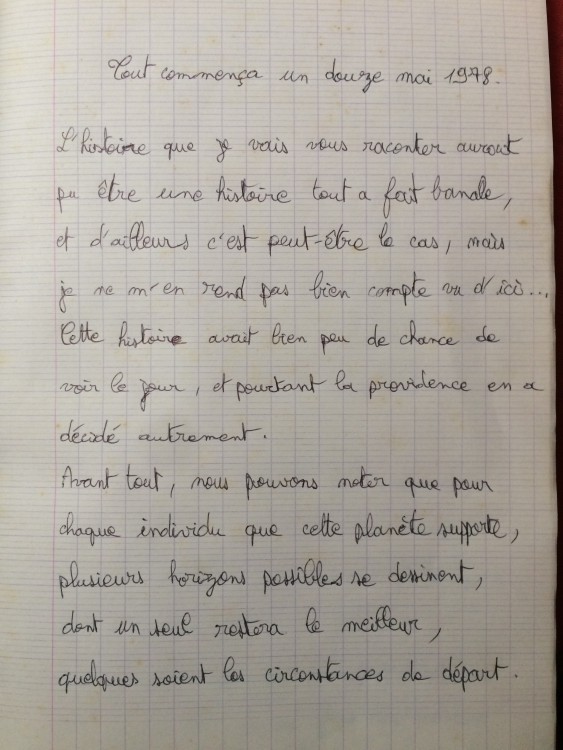 Tout commença un douze mai 1978.
L'histoire que je vais vous raconter aurait
pu être une histoire tout a fait banale,
et d'ailleurs c'est peut-être le cas, mais
je ne m'en rend pas bien compte vu d'ici...
Cette histoire avait bien peu de chance de
voir le jour, et pourtant la providence en a
décidé autrement.
Avant tout, nous pouvons noter que pour
chaque individu que cette planète supporte,
plusieurs horizons possibles se dessinent,
dont un seul restera le meilleur,
quelques soient les circonstances de départ.